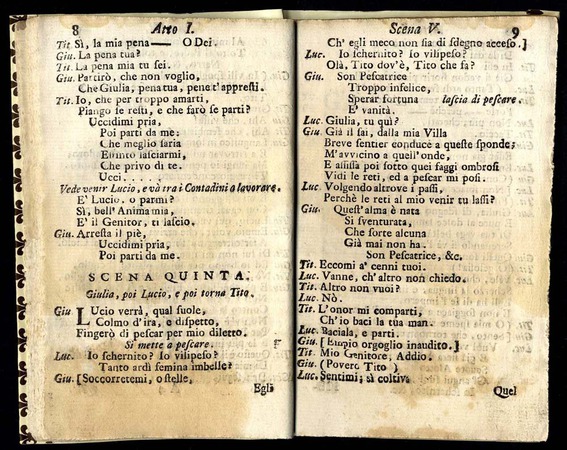 8 Atto I.
Tit. Sì, la mia pena—— O Dei.
Giu. La pena tua?
Tit. La pena mia tu sei.
Giu. Partirò, che non voglio,
Che Giulia, pena tua, pene t'appresti.
Tit. Io, che per troppo amarti,
Piango se resti, e che farò se parti?
Uccidimi pria,
Poi parti da me:
Che meglio saria
Estinto lasciarmi,
Che privo di te.
Ucci. . . . ,
Vede venir Lucio, e và tra i Contadini a lavorare.
E' Lucio, o parmi?
Sì, bell'Anima mia,
E' il Genitor, ti lascio.
Giu. Arresta il piè,
Uccidimi pria,
Poi parti da me.
SCENA QUINTA.
Giulia, poi Lucio, e poi torna Tito.
Giu. Lucio verrà, qual suole,
Colmo d'ira, e dispetto,
Fingerò di pescar per mio diletto.
Si mette a pescare.
Luc. Io schernito? Io vilipeso?
Tanto ardì femina imbelle?
Giu. [Soccorretemi, o stelle,
Egli
Scena V. 9
Ch' egli meco non sia di sdegno acceso.]
Luc. Io schernito? Io vilipeso?
Olà, Tito dov'è, Tito che fa?
Giu. Son Pescatrice
Troppo infelice,
Sperar fortuna lascia di pescare.
E' vanità.
Luc. Giulia, tu quì?
Giu. Già il sai, dalla mia Villa
Breve sentier conduce a queste sponde;
M'avvicino a quell'onde,
E assisa poi sotto quei faggi ombrosi
Vidi le reti, ed a pescar mi posi.
Luc. Volgendo altrove i passi,
Perchè le reti al mio venir tu lassi?
Giu. Quest'alma è nata
Sì sventurata,
Che sorte alcuna
Già mai non ha.
Son Pescatrice, &c.
Tit. Eccomi a' cenni tuoi.
Luc. Vanne, ch'altro non chiedo.
Tit. Altro non vuoi?
Luc. Nò.
Tit. L'onor mi comparti,
Ch'io baci la tua man.
Luc. Baciala, e parti.
Giu. [Empio orgoglio inaudito.]
Tit. Mio Genitore, Addio.
Giu. (Povero Tito)
Luc. Sentimi; sì coltivi
Quel